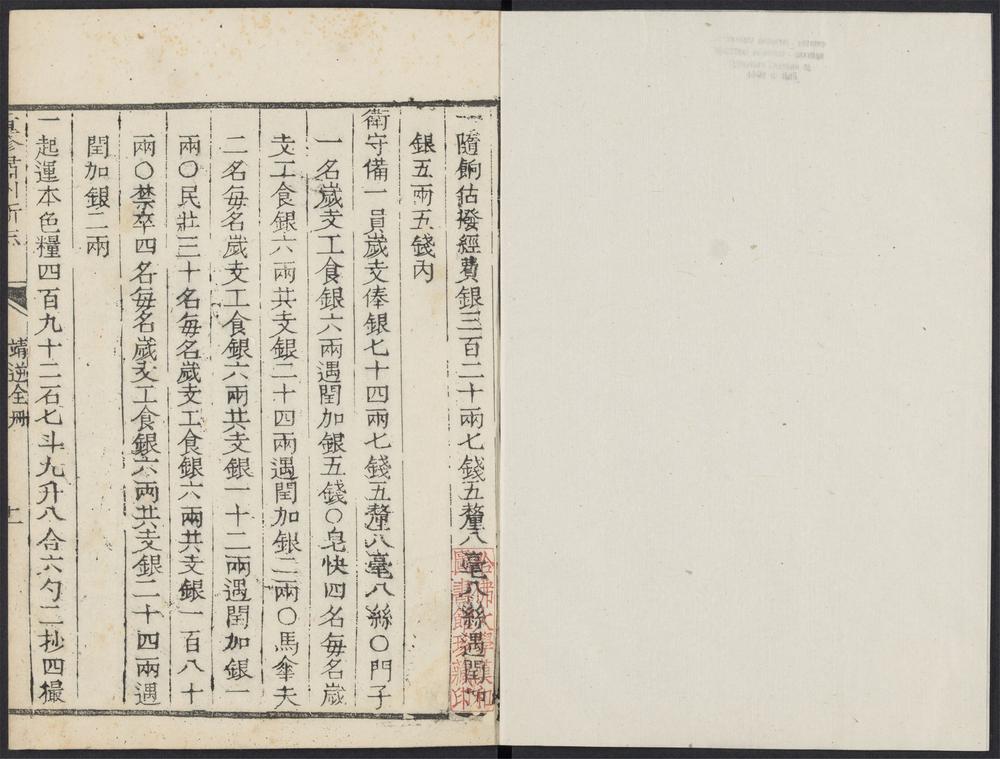 一隨餉估撥經費銀三百二十兩七錢五釐八毫八絲遇閏加
銀五兩五錢內
衛守備一員歲支俸銀七十四兩七錢五釐八毫八絲○門子
一名歲支工食銀六兩遇閏加銀五錢○皂快四名每名歲
支工食銀六兩共支銀二十四兩遇閏加銀二兩○馬傘夫
二名每名歲支工食銀六兩共支銀一十二兩遇閏加銀一
兩○民壯三十名每名歲支工食銀六兩共支銀一百八十
兩○禁卒四名每名歲支工食銀六兩共支銀二十四兩遇
閏加銀二兩
一起運本色糧四百九十二石七斗九升八合六勺二抄四撮
靖逆全冊
哈佛大學漢和
圖書館珍藏印